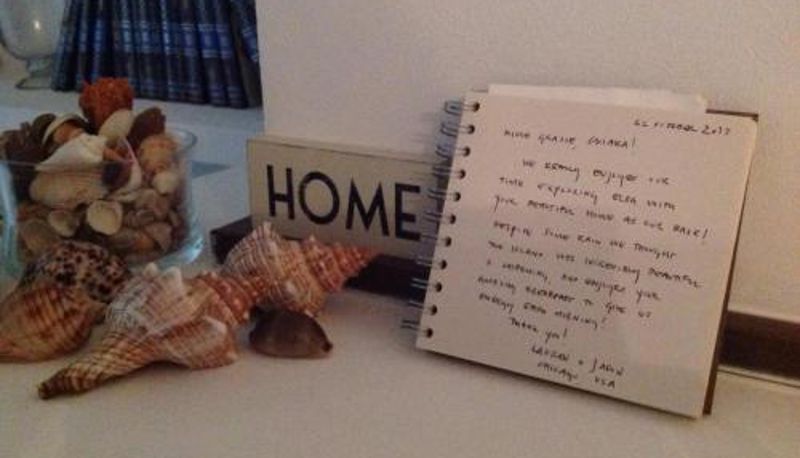 HOME
22 OTTOBRE 2013
MILLE GRAZIE CHIARA!
WE REALLY ENJOYED OUR
TIME EXPLORING ELBA WITH
YOUR BEAUTIFUL HOME AS OUR BASE!
DESPITE SOME RAIN WE THOUGHT
THE ISLAND WAS INCREDIBLY BEAUTIFUL
& WELCOMING, AND ENJOYED YOUR
AMAZING BREAKFAST TO GIVE US
ENERGY EACH MORNING!
THANK YOU!
LAUREN + JASON
CHICAGO USA